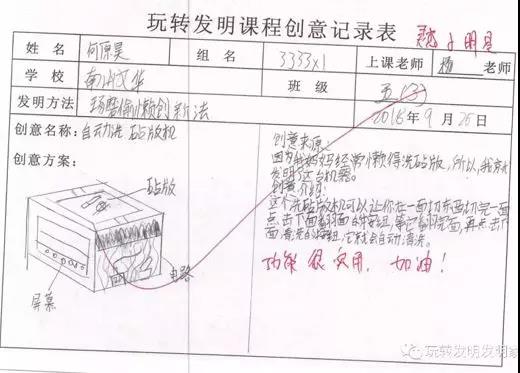 玩转发明课程创意记录表
灵感小明星
姓 名 何原昊 组 名 3333x1 上课老师 杨 老师
学 校 南川文华 班 级 五(3)
发明方法 偷懒创新法 2016年9月25日
创意名称:自动洗砧版机
创意方案:
砧版
屏幕
电路
创意来源:
因为我妈妈经常懒得洗砧版,所以,我
发明这台机器。
创意介绍:
这个洗砧版机可以让你在一面切东西切完一面
点击下面翻面的按钮,等它翻完面,再点击下
面清洗的按钮,它就会自动清洗。
功能很实用,加油!
玩转发明发明家